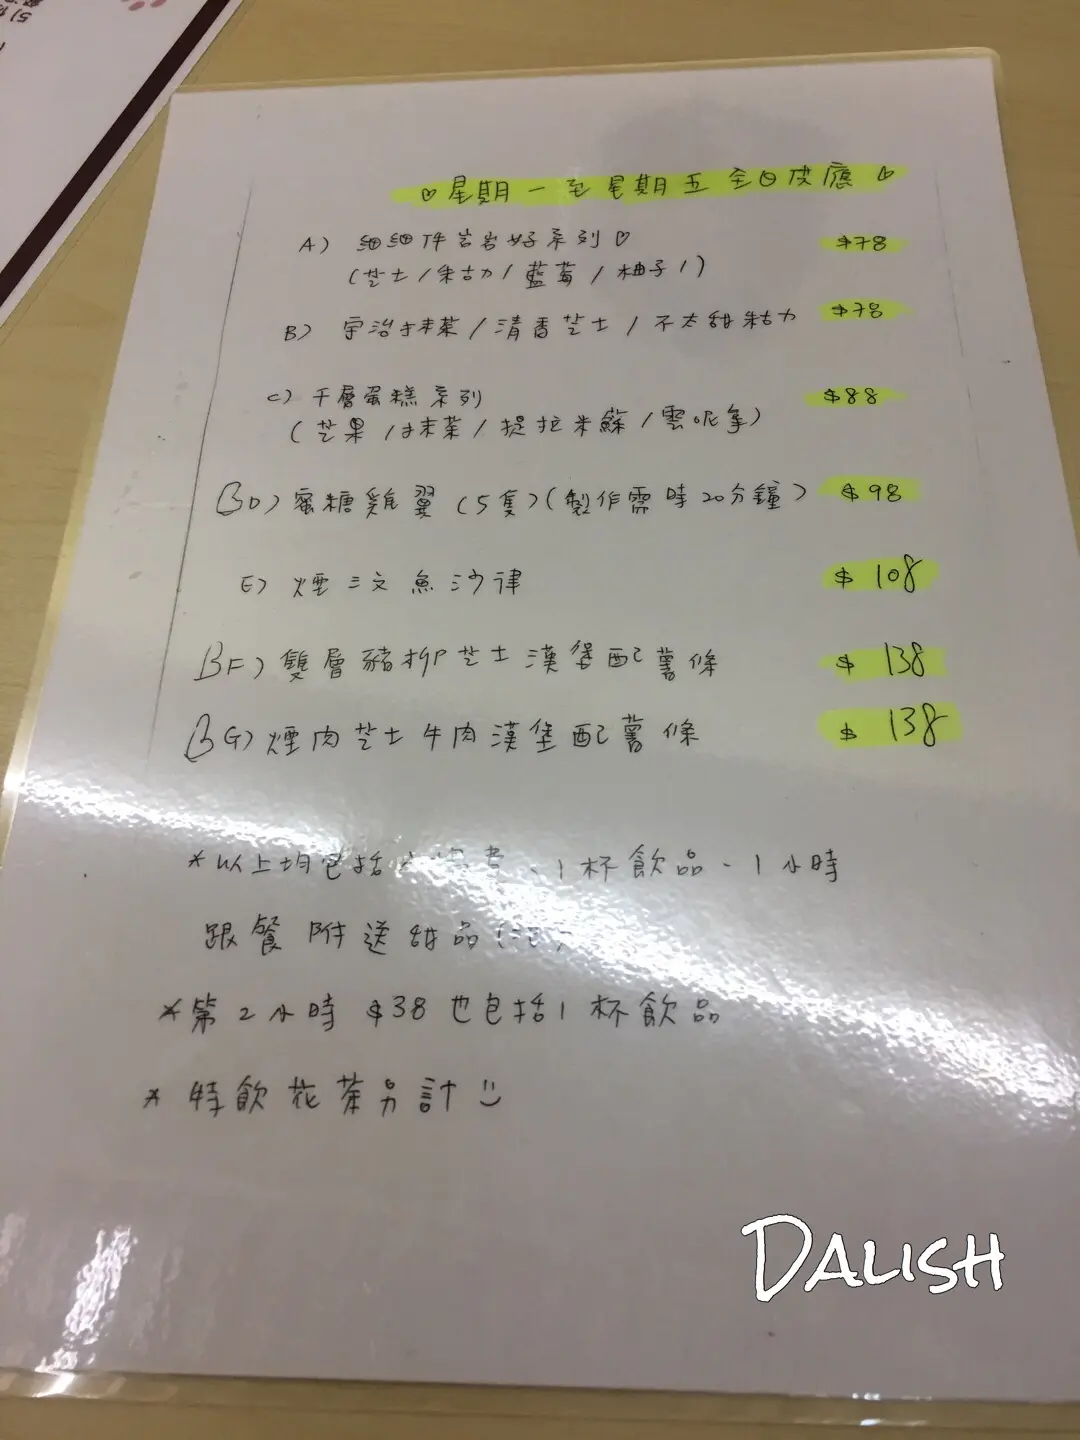 ♡星期一至星期五全日供應♡
A) 細細件岩岩好系列♡ $78
(芝士/朱古力/藍莓/柚子/)
B) 宇治抹茶/清香芝士/不太甜朱古力 $78
C) 千層蛋糕系列 $88
(芒果/抹茶/提拉米蘇/雲呢拿)
BD) 蜜糖雞翼(5隻)(製作需時20分鐘) $98
E) 煙三文魚沙律 $108
BF) 雙層豬柳芝士漢堡配薯條 $138
BG) 煙肉芝士牛肉漢堡配薯條 $138
*以上均包括 、1杯飲品、1小時
跟餐附送甜品
*第2小時 $38也包括1杯飲品
*特飲花茶另計
DALISH